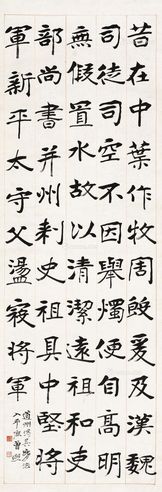 昔在中葉作牧周殷爰及漢魏
司徒司空不因舉燭便自高明
無假置水故以清潔遠祖和吏
部尚書并州刾史祖具中堅將
軍新平太守父盪寇將軍
道州
曾熙